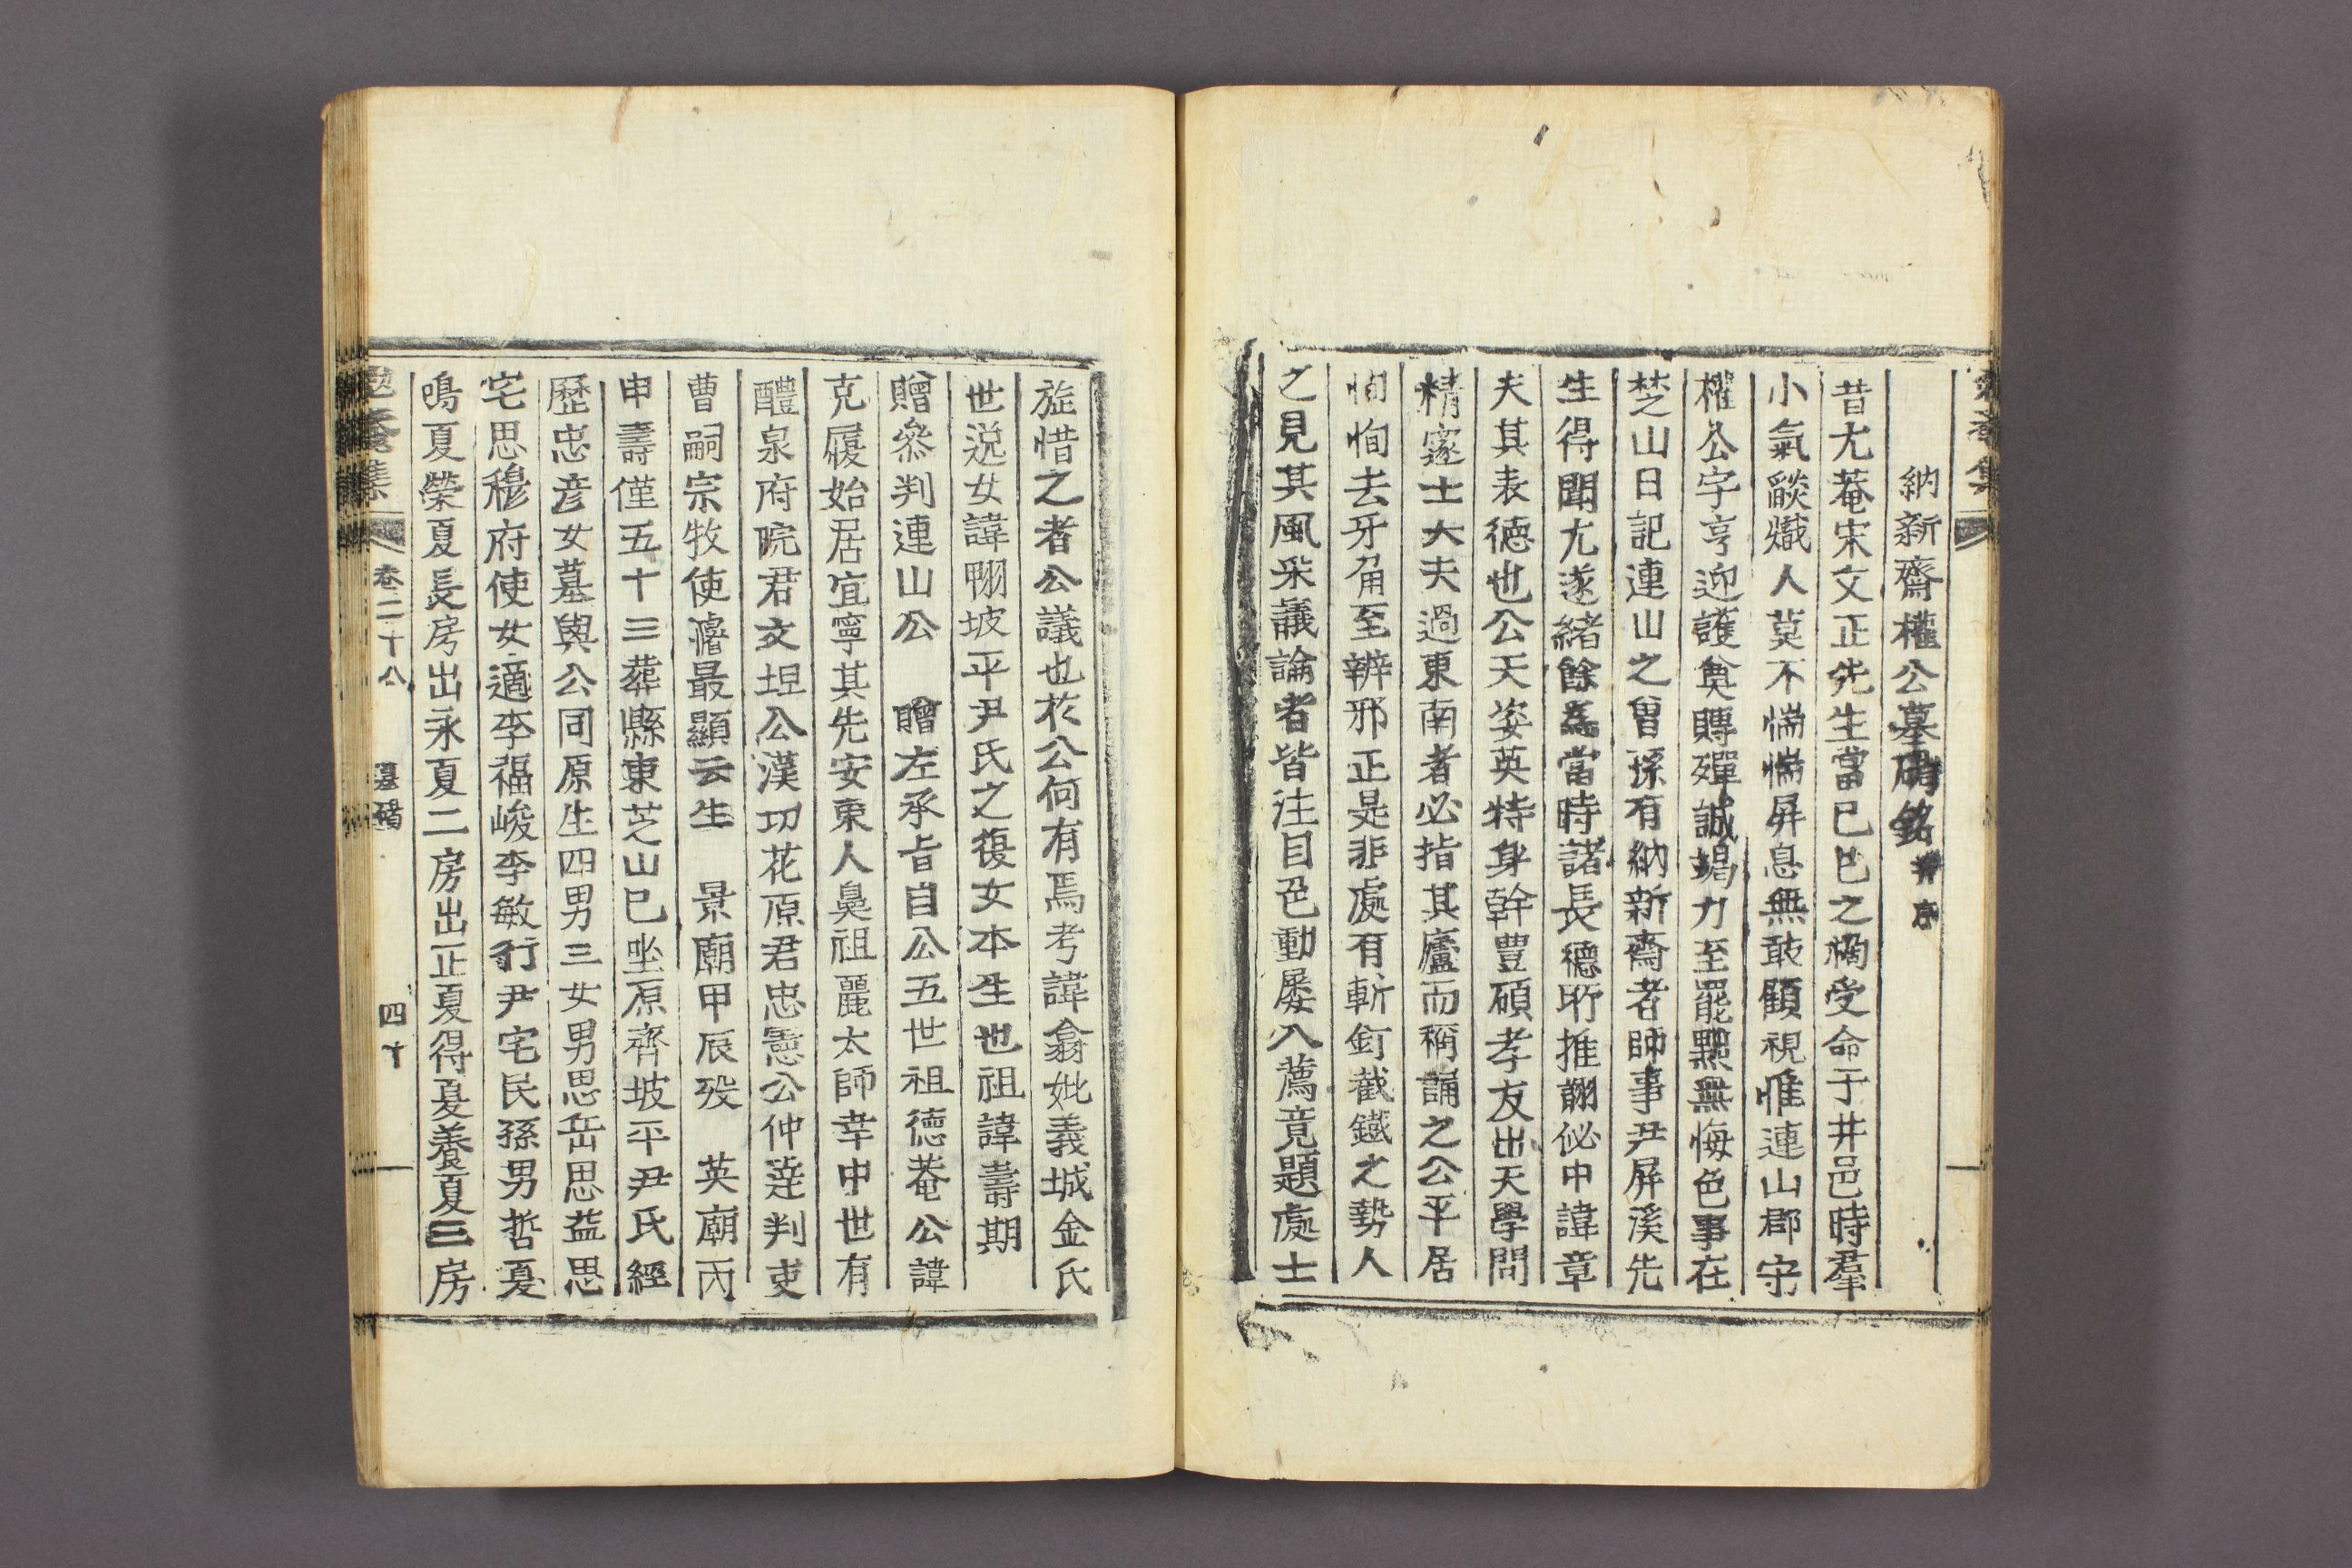 納新齋權公墓碣銘 幷序
昔尤菴宋文正先生當己巳之禍受命于井邑時羣
小氣燄熾人莫不惴惴屏息無敢顧視惟連山郡守
權公字亨迎護奠賻殫誠竭力至罷黜無悔色事在
楚山日記連山之曾孫有納新齋者師事尹屏溪先
生得聞尤遂緖餘爲當時諸長德所推翽佖中諱章
夫其表德也公天姿英特身幹豊碩孝友出天學問
精邃士大夫過東南者必指其廬而稱誦之公平居
恂恂去牙角至辨邪正是非處有斬釘截鐵之勢人
之見其風采議論者皆注目色動屡入薦竟題處士
旋惜之者公議也於公何有焉考諱翕妣義城金氏
世説女諱翢坡平尹氏之復女本生也祖諱壽期
贈叅判連山公 贈左承旨自公五世祖德菴公諱
克履始居宜寧其先安東人鼻祖麗太師幸中世有
醴泉府院君文坦公漢功花原君忠憲公仲達判吏
曹嗣宗牧使濳最顯云生 景廟甲辰歿 英廟丙
申壽僅五十三葬縣東芝山巳坐原齊坡平尹氏經
歷忠彦女墓與公同原生四男三女男思岳思益思
宅思穆府使女適李福峻李敏行尹宅民孫男哲夏
鳴夏榮夏長房出永夏二房出正夏得夏養夏三房
卷二十八 墓碣 四十